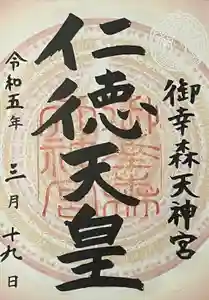 御幸森天神宮
仁徳天皇
令和五年 三月 十九日